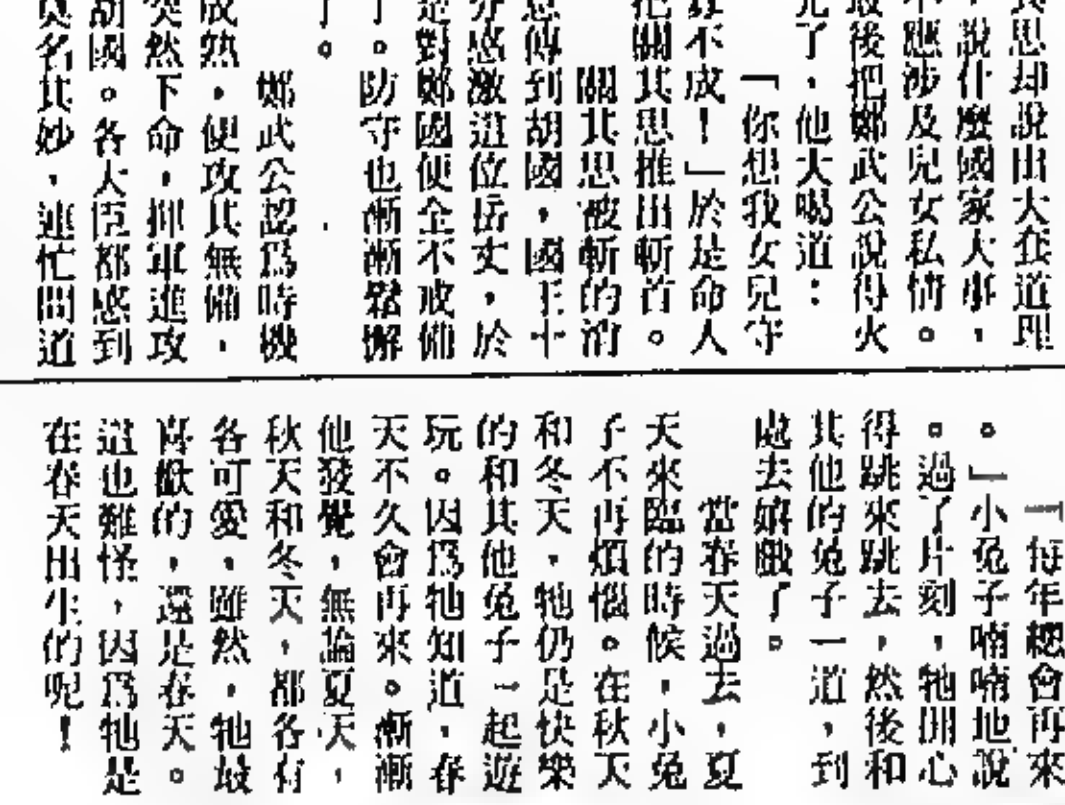 其思却說出大套道理
，說什麼國家大事，
不應涉及兒女私情。
最後把鄭武公說得火
了，他大喝道：
「你想我女兒守
寡不成！」於是命人
把關其思推出斬首。
關其思被斬的消
息傳到胡國，國王十
分感激這位岳丈，於
是對鄭國便全不戒備
了。防守也漸漸鬆懈
了。
鄭武公認爲時機
成熟，便攻其無備，
突然下命，揮軍進攻
胡國。各大臣都感到
莫名其妙，連忙問道
「每年總會再來
。」小兔子喃喃地說
。過了片刻，牠開心
得跳來跳去，然後和
其他的兔子一道，到
處去嬉戲了。
當春天過去，夏
天來臨的時候，小兔
子不再煩惱。在秋天
和冬天，牠仍是快樂
的和其他兔子一起遊
玩。因爲牠知道，春
天不久會再來。漸漸
他發覺，無論夏天，
秋天和冬天，都各有
各可愛，雖然，牠最
喜歡的，還是春天。
這也難怪，因爲牠是
在春天出生的呢！